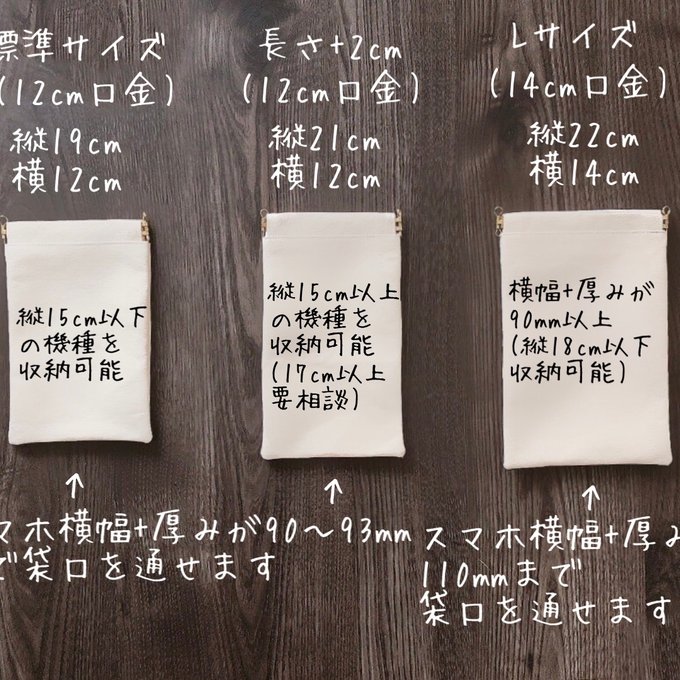 標準サイズ
(12cm口金)
縦19cm
横12cm
長さ+2cm
(12cm口金)
縦21cm
横12cm
Lサイズ
(14cm口金)
縦22cm
横14cm
縦15cm以下
の機種を
収納可能
縦15cm以上
の機種を
収納可能
(17cm以上
要相談)
横幅+厚みが
90mm以上
(縦18cm以下
収納可能)
↑
マホ横幅+厚みが90～93mm
で袋口を通せます
↑
↑
スマホ横幅+厚み
110mmまで
袋口を通せます